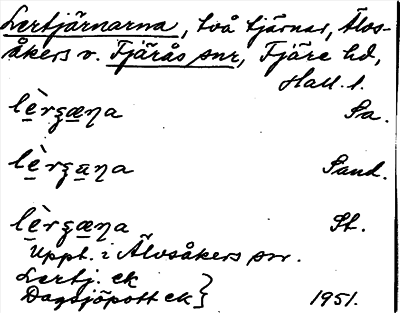 Lertjärnarna, två tjärnar, Älvs-
åkers v. Fjärås snr, Fjäre hd,
Hall. l.
lèrʒæna Sa.
lèrʒäna Sand.
lèrʒæna St.
Uppt. i Älvsåkers snr.
Lertj. ek
Dagsjöpott ek } 1951.